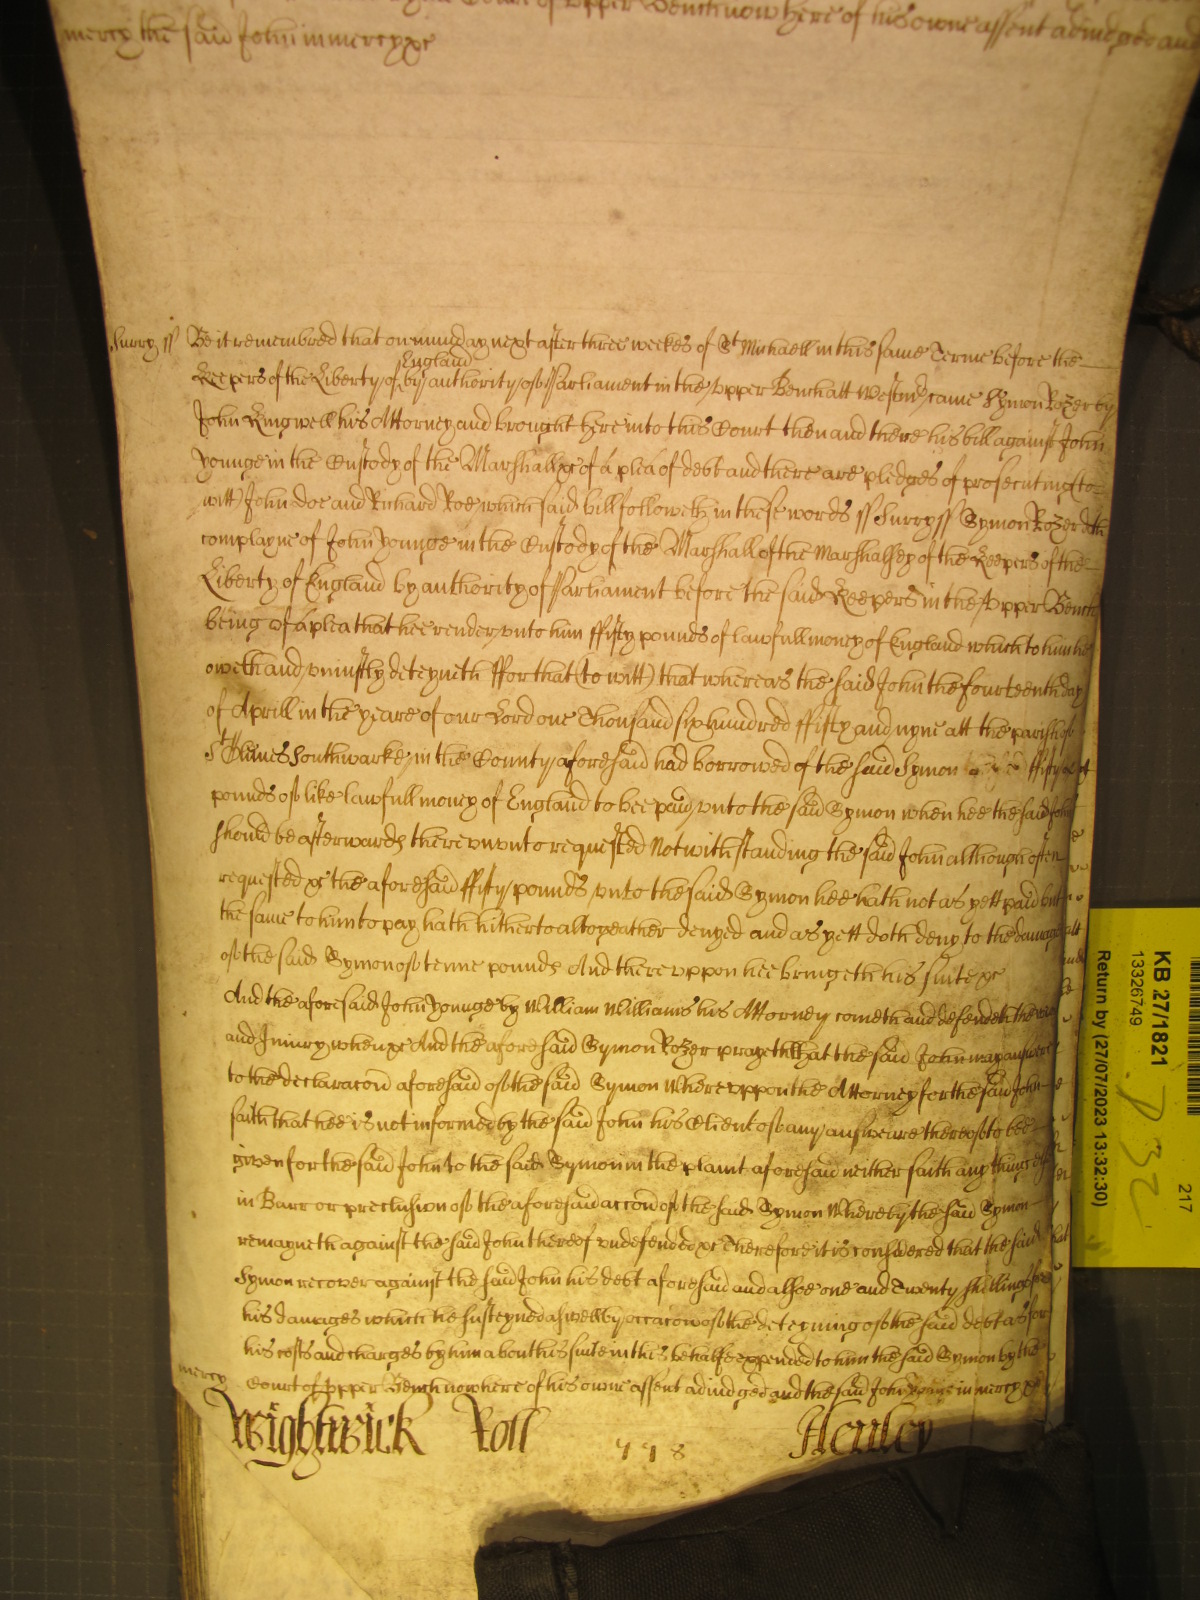 Court of Upper Bench now here of his owne assent adiudged and
mercy the said John in mercy &c
Surry ss Be it remembred that on munday next after three weekes of St Michaell in this same Terme before the
Keepers of the Liberty of England by authority of Parliament in the Upper Bench att Westmr came Symon Rozer by
John Kingwell his Attorney and brought here into this Court then and there his bill against John
Younge in the Custody of the Marshall &c of a plea of debt and there are pledges of prosecuting (to
witt) John Doe and Richard Roe which said bill followeth in these words ss Surry ss Symon Rozer doth
complayne of John Younge in the Custody of the Marshall of the Marshalsey of the Keepers of the
Liberty of England by authority of Parliament before the said Keepers in the Upper Bench
being of a plea that hee render unto him ffifty pounds of lawfull money of England which to him he
oweth and uniustly deteyneth ffor that (to witt) that whereas the said John the fourteenth day
of Aprill in the yeare of our Lord one Thousand six hundred ffifty and nyne att the parish of
St Olaves Southwarke in the County aforesaid had borrowed of the said Symon ffifty
pounds of like lawfull money of England to bee paid unto the said Symon when hee the said John
should be afterwards thereunto requested Notwithstanding the said John although often
requested &c the aforesaid ffifty pounds unto the said Symon hee hath not as yett paid but
the same to him to pay hath hitherto altogeather denyed and as yett doth deny to the damage
of the said Symon of tenne pounds And thereuppon hee bringeth his suite &c
And the aforesaid John Younge by William Williams his Attorney cometh and defendeth the
and Iniury when &c And the aforesaid Symon Rozer prayeth that the said John may answere
to the declaracon aforesaid of the said Symon Whereuppon the Attorney for the said John
saith that hee is not informed by the said John his Client of any answeare thereof to bee
given for the said John to the said Symon in the plaint aforesaid neither saith any thinge
in Barr or preclusion of the aforesaid accon of the said Symon Whereby the said Symon
remayneth against the said John thereof undefended &c Therefore it is considered that the said
Symon recover against the said John his debt aforesaid and alsoe one and Twenty shillings for
his damages which he susteyned aswell by occacon of the deteyning of the said debt as for
his costs and charges by him about his suite in this behalfe expended to him the said Symon by the
mercy Court of Upper Bench now here of his owne assent adiudged and the said John Younge in mercy &c
Wightwick Roll 778 Henley
KB 27/1821
13326749
217
Return by (27/07/2023 13:32:30)
P 32